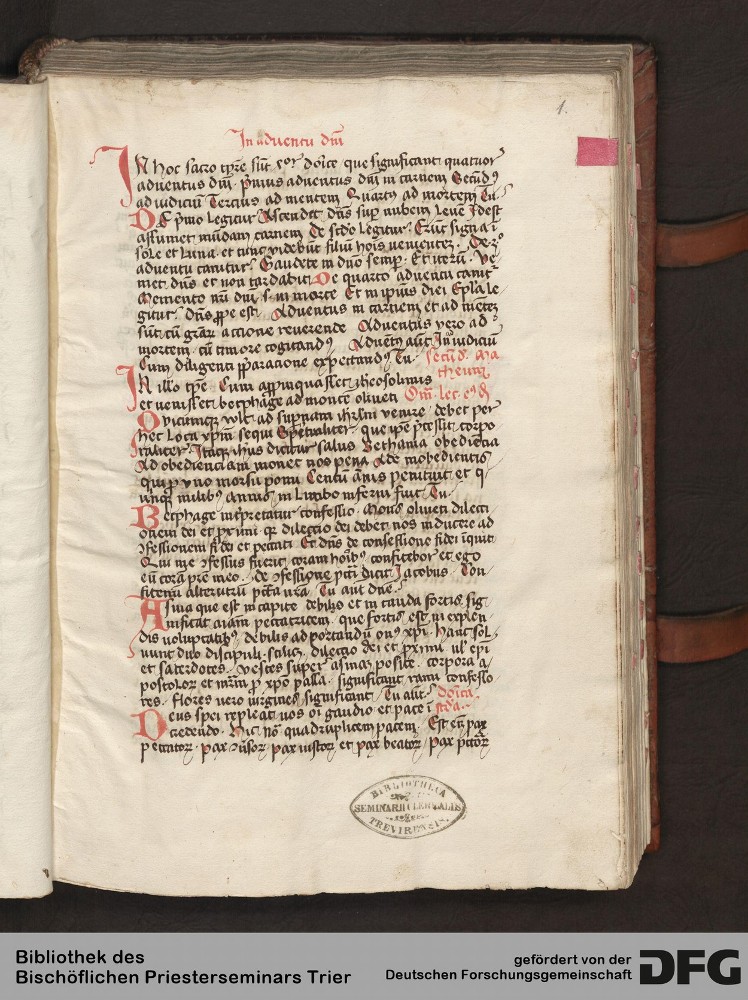 1.
In aduentu dm̄
IN hoc sacro tp̄re sūt dōīce que significant quatuor
aduentus dm̄. p̄mus aduentus dm̄ in carnem Secūdꝯ
ad iudiciū Tercius ad mentem Quartꝯ ad mortem Tu
DE p̄mo legitur Ascendet dn̄s sup nubem leuē Idest
assumet mūdam carnem De sc̄do legitur Erūt signa ī
sole et luna et tunc videbūt filiū hoīs venientē. De
aduentu canitur Gaudete in dn̄o semp. Et iterū. Ve
niet dn̄s et non tardabit De quarto aduentu canit᷑
Memento nr̄i dn̄i in morte Et in ipsius diei Ep̄la le
gitur. dn̄s ꝓpe est. Aduentus in carnem et ad mētē
sūt cū grāꝝ accione reuerende Aduentus vero ad
mortem cū timore cogitandꝯ Aduētꝯ aūt In iudiciū
Cum diligenti p̄paracione expectandꝯ Tu. Secūd. Ma
theum
IN illo tp̄e Cum appinquasset iherosolimis
et venisset bethphage ad montē oliueti Om̄.
Quicumqꝫ vult ad sup̄nam ihrl̄m venire debet per
hec loca xp̄m sequi Sp̄ēaliter que ip̄e p̄cessit corpo
raliter. Itaqꝫ ihūs dicitur salus Bethania obediētia
Ad obedienciam monet nos pena Ade inobedientis
qui ꝓ vno morsu pomi Centū ānis penituit et q̄
inqꝫ milibꝯ annis in Limbo inferni fuit Tu.
Betphage inp̄retatur confessio Mons oliueti dilecti
onem dei et ꝓximi qꝛ dilectio dei debet nos inducere ad
ꝯfessionem fidei et peccati Et dn̄s de confessione fidei iquit
Qui me ꝯfessus fuerit coram hoībꝯ confitebor et ego
eū corā p̄re meo. De ꝯfessione pctī dicit Jacobus. Con
fitemī alterutrū pctā vr̄a. Tu aūt dn̄e.
Asina que est in capite debilis et in cauda fortis sig
nificat aīam peccatricem. que fortis est in explen
dis voluptatibꝯ debilis ad portandū onꝯ xp̄i. Hanc sol
uunt duo discipuli. scilicꝫ dilectio dei et ꝓximi ul̓ ep̄i
et sacerdotes. vestes super asinaꝫ posite. corpora a
postoloꝝ et mr̄m ꝓ xp̄o passa. significant rami confesso
res. flores vero uirgines significant Tu aūt. dōīca
Deus spei repleat uos oī gaudio et pace ī sc̄da.
credendo. Hic nō quadruplicem pacem. Est eī pax
peccatoꝝ. pax iustoꝝ et pax beatoꝝ
BIBLIOTHECA
SEMINARII CLERICALIS
TREVIRENSIS.
Bibliothek des
Bischöflichen Priesterseminars Trier
gefördert von der
Deutschen Forschungsgemeinschaft
DFG